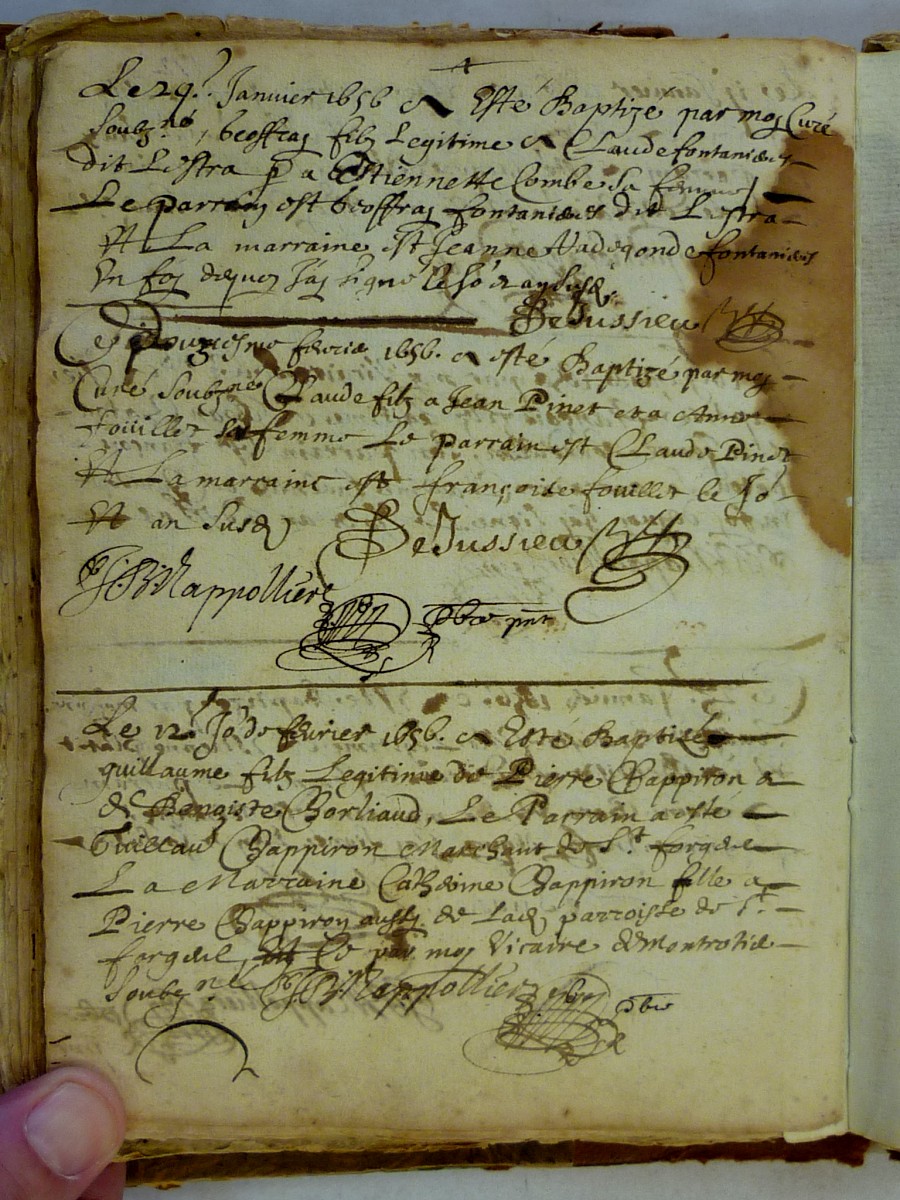 Le 29.e Janvier 1656 a Esté Baptize par moy Curé
Soubz.né, Geoffray filz Legitime a Claude fontanieres
dit Lestra a Estiennette Combe sa femme
Le parrain est Geoffray fontanieres dit Lestra
Et La marraine est Jeanne fontanieres
En foy dequoy J'ay signé le Jo.r et an Susd.
DeJussieu
Ce Douziesme febvrier 1656. a esté Baptizé par moy
Curé Soubz.né Claude filz a Jean Pinet et a Anne
fouillet sa femme Le parrain est Claude Pinet
Et La marraine est françoise fouillet le Jo.r
Et an Susd.
DeJussieu
Chappollier
pbre pnt
Le 12.e Jo.r de febvrier 1656. a Esté Baptisé
guillaume filz Legitime de Pierre Chappiron a
& Benoiste Chorliaud, Le Parrain a esté
Guillau.e Chappiron Marchant de S.t forgeul
La Marraine Catherine Chappiron fille a
Pierre Chappiron aussy de Lad. parroisse de S.t
forgeul, Et Ce par moy Vicaire de Montrotier
Soubz.né Chappollier pbre